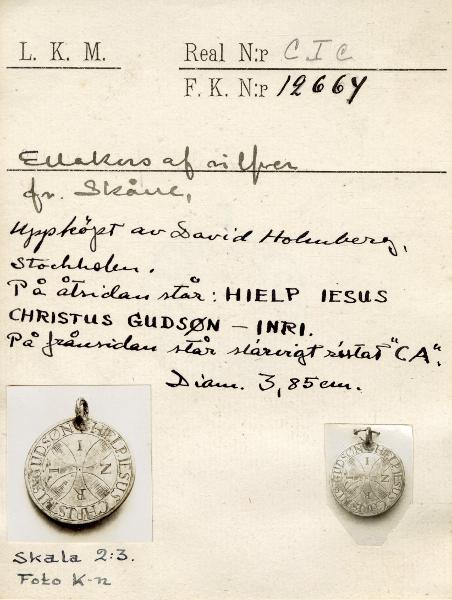 L. K. M.
Real N:r CIC
F. K. N:r 12664
Ellakors af silfver
fr. Skåne,
Uppköpt av David Holmberg,
Stockholm.
På åtsidan står: HIELP IESUS
CHRISTUS GUDSØN – INRI.
På frånsidan står slarvigt ristat "CA".
Diam. 3,85 cm.
HIELP IESUS CHRISTUS GUDSØN
I N R I
HIELP IESUS CHRISTUS GUDSØN
I N R I
Skala 2:3.
Foto K-n